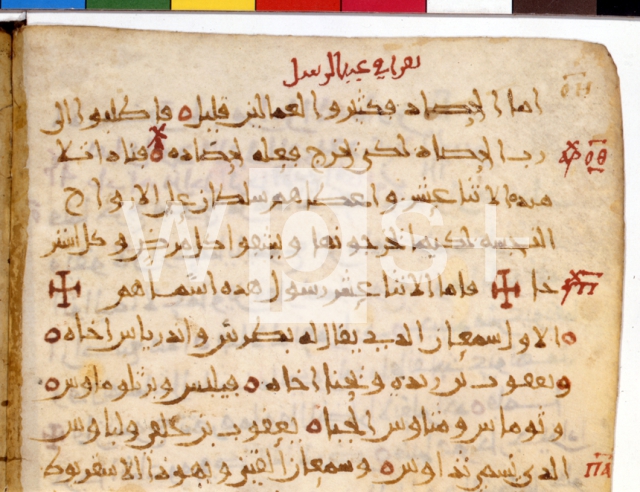 يقرا في عيد الرسل
اما الحصاد فكثير والعمالين قليل o فاطلبوا الى
رب الحصاد لكي يخرج فعله لحصاده o فنادا تلا
ميده الاثنا عشر واعطاهم سلطان على الارواح
النجسه لكيما يخرجونها ويشفوا كل مرض وكل استر
خا ✠ فاما الاثنا عشر رسول هذه اسماهم ✠
o الاول سمعان الذي يقال له بطرس واندرياس اخاه o
ويعقوب بن زبدى ويحنا اخاه o فيلبس وبرتلوماوس
وتوماس ومتاوس الجبا o يعقوب بن حلفى ولباوس
الذي تسمى تداوس o وسمعان القيني ويهوذا الاسقريوط
wps+